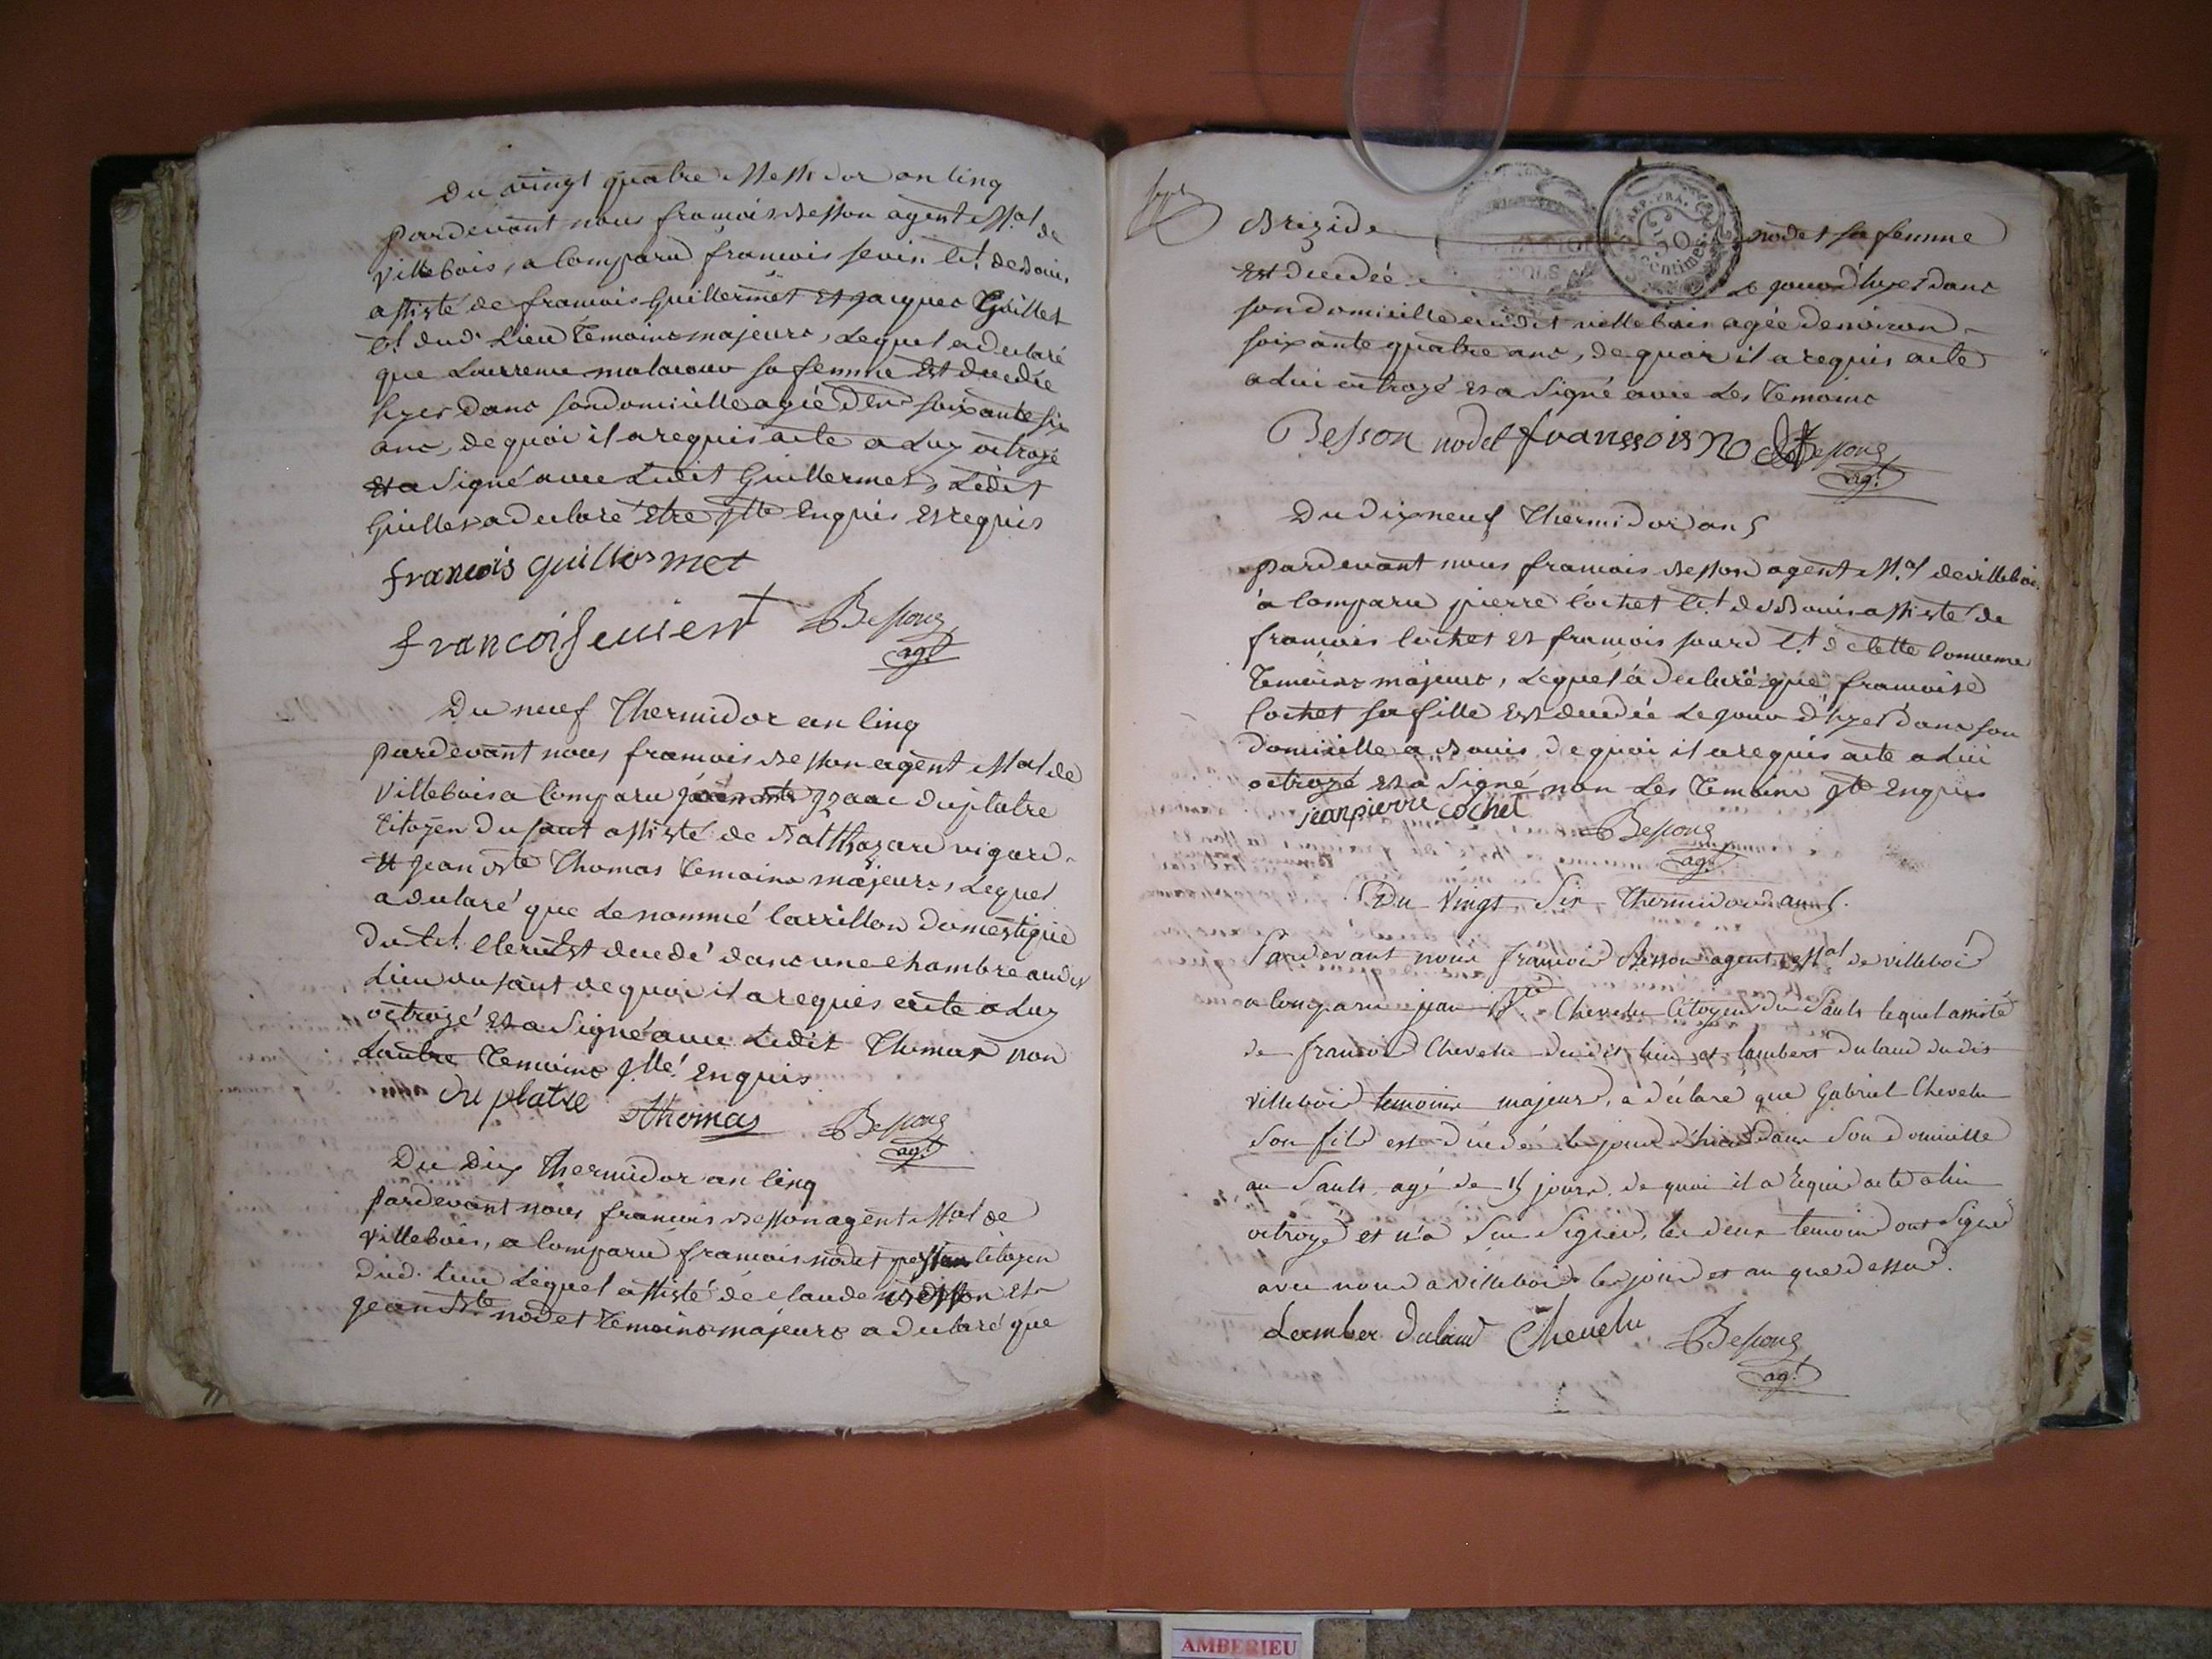 Du vingt quatre Messidor an cinq
pardevant nous francois Besson agent M.al de
villebois, a comparu francois sevin Cit. de Bouis
assisté de francois Guillermet et jacques Guillet
Cit. dud. Lieu temoins majeurs, Lequel a declaré
que Laurence sa femme Est decedée
hyer dans son domicille agée d'en.v soixante six
ans, de quoi il a requis acte a Luy octroyé
Et a signé avec Ledit Guillermet, Ledit
Guillet a declaré Etre jllte Enquis et requis
francois guillermet
francoi seuiert Besson
ag.t
Du neuf Thermidor an cinq
pardevant nous francois Besson agent M.al de
villebois a comparu jzaac duplatre
Citoyen du saut assisté de Balthazard vigard
et jean Bte Thomas temoins majeurs, Lequel
a declaré que Le nommé Carrillon domestique
du Cit. Clerc Est decedé dans une chambre audit
Lieu du saut de quoi il a requis acte a Luy
octroyé Et a signé avec Ledit Thomas non
Lautre temoins jllté Enquis
du platre Thomas Besson
ag.t
Du Dix Thermidor an cinq
pardevant nous francois Besson agent M.al de
villebois, a comparu francois nodet Citoyen
dud. Lieu Lequel assisté de claude Besson Et
jean Bte nodet temoins majeurs a declaré que
Brigide nodet sa femme
Est decedée Le jour d'hyer dans
son domicille audit villebois agée denviron
soixante quatre ans, de quoi il a requis acte
a Lui octroyé et a signé avec Les temoins
Besson nodet franssois nodet Besson
ag.t
REP. FRA.
50
centimes
Du dix neuf Thermidor an 5
pardevant nous francois Besson agent M.al de villebois
a comparu pierre Cochet Cit. de Bouis assisté de
francois Cochet et francois sourd Cit. de Cette Commune
temoins majeurs, Lequel a declaré que francoise
Cochet sa fille Est decedée Le jour d'hyer dans son
domicille a Bouis de quoi il a requis acte a Lui
octroyé et a signé non Les temoins jllte Enquis
jeanpierre cochet
Besson
ag.t
Du Vingt Six Thermidor an 5.
Pardevant nous francois Besson agent M.al de villebois
a comparu jean Bte Chevelu Citoyen du Sault lequel assisté
de francois Chevelu dudit lieu et lambert dulaud dudit
villebois temoins majeurs, a déclaré que Gabriel Chevelu
son fils est decedé le jour d'hier dans son domicille
au Sault agé de 15 jours. de quoi il a requis acte a lui
octroyé et n'a sçu signer, les deux temoins ont signé
avec nous a villebois les jour et an que dessus.
Lamber dulaud Chevelu Besson
ag.t
AMBERIEU